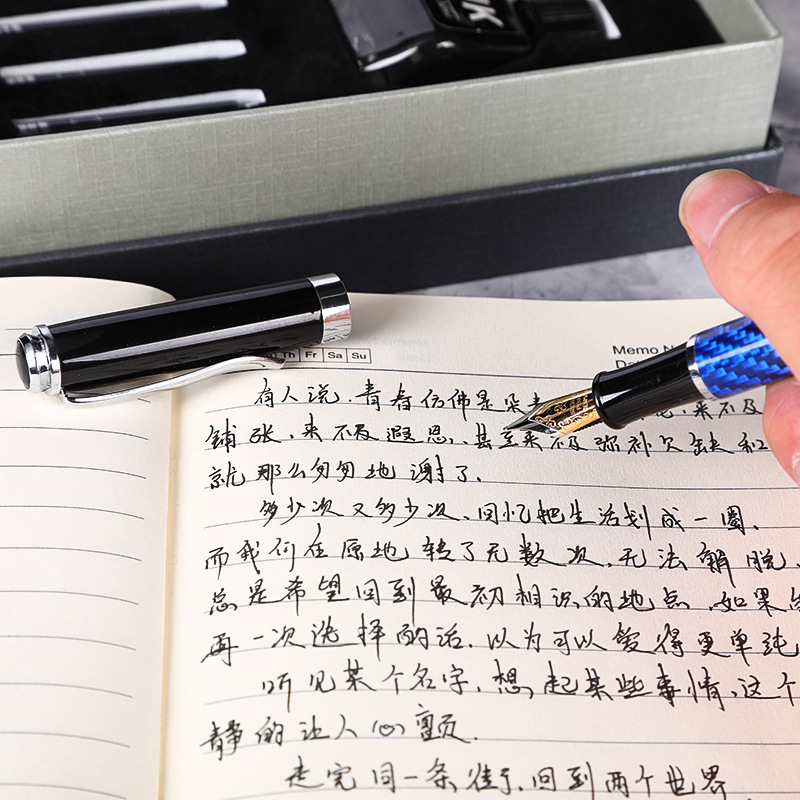 NK
Th Fr Sa Su
Memo N
Da
有人说,青春仿佛是朵 来不及
铺张,来不及遐思,甚至来不及弥补欠缺和
就那么匆匆地谢了.
多少次又多少次,回忆把生活划成一圈,
而我们在原地转了无数次,无法解脱,
总是希望回到最初相识的地点,如果
再一次选择的话,以为可以爱得更单纯
听见某个名字,想起某些事情,这个
静的让人心颤.
走完同一条街,回到两个世界